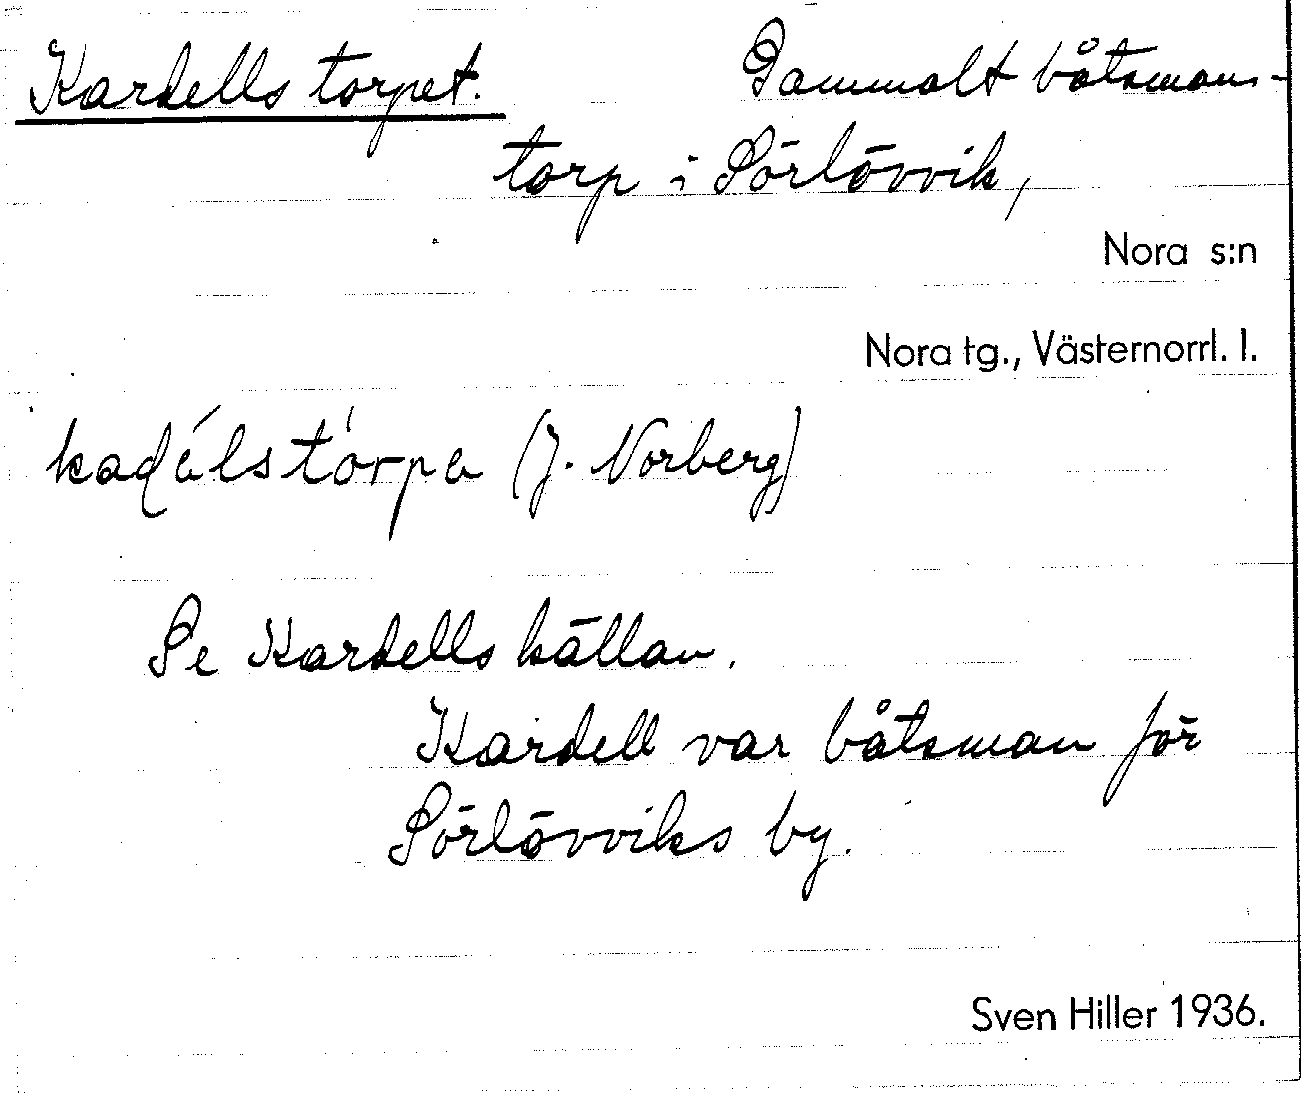 Kardells torpet. Gammalt båtsmans-
torp i Sörlövvik,
Nora s:n
Nora tg., Västernorrl. l.
kaɖélstórpə (J. Norberg)
Se Kardells källan.
Kardell var båtsman för
Sörlövviks by.
Sven Hiller 1936.